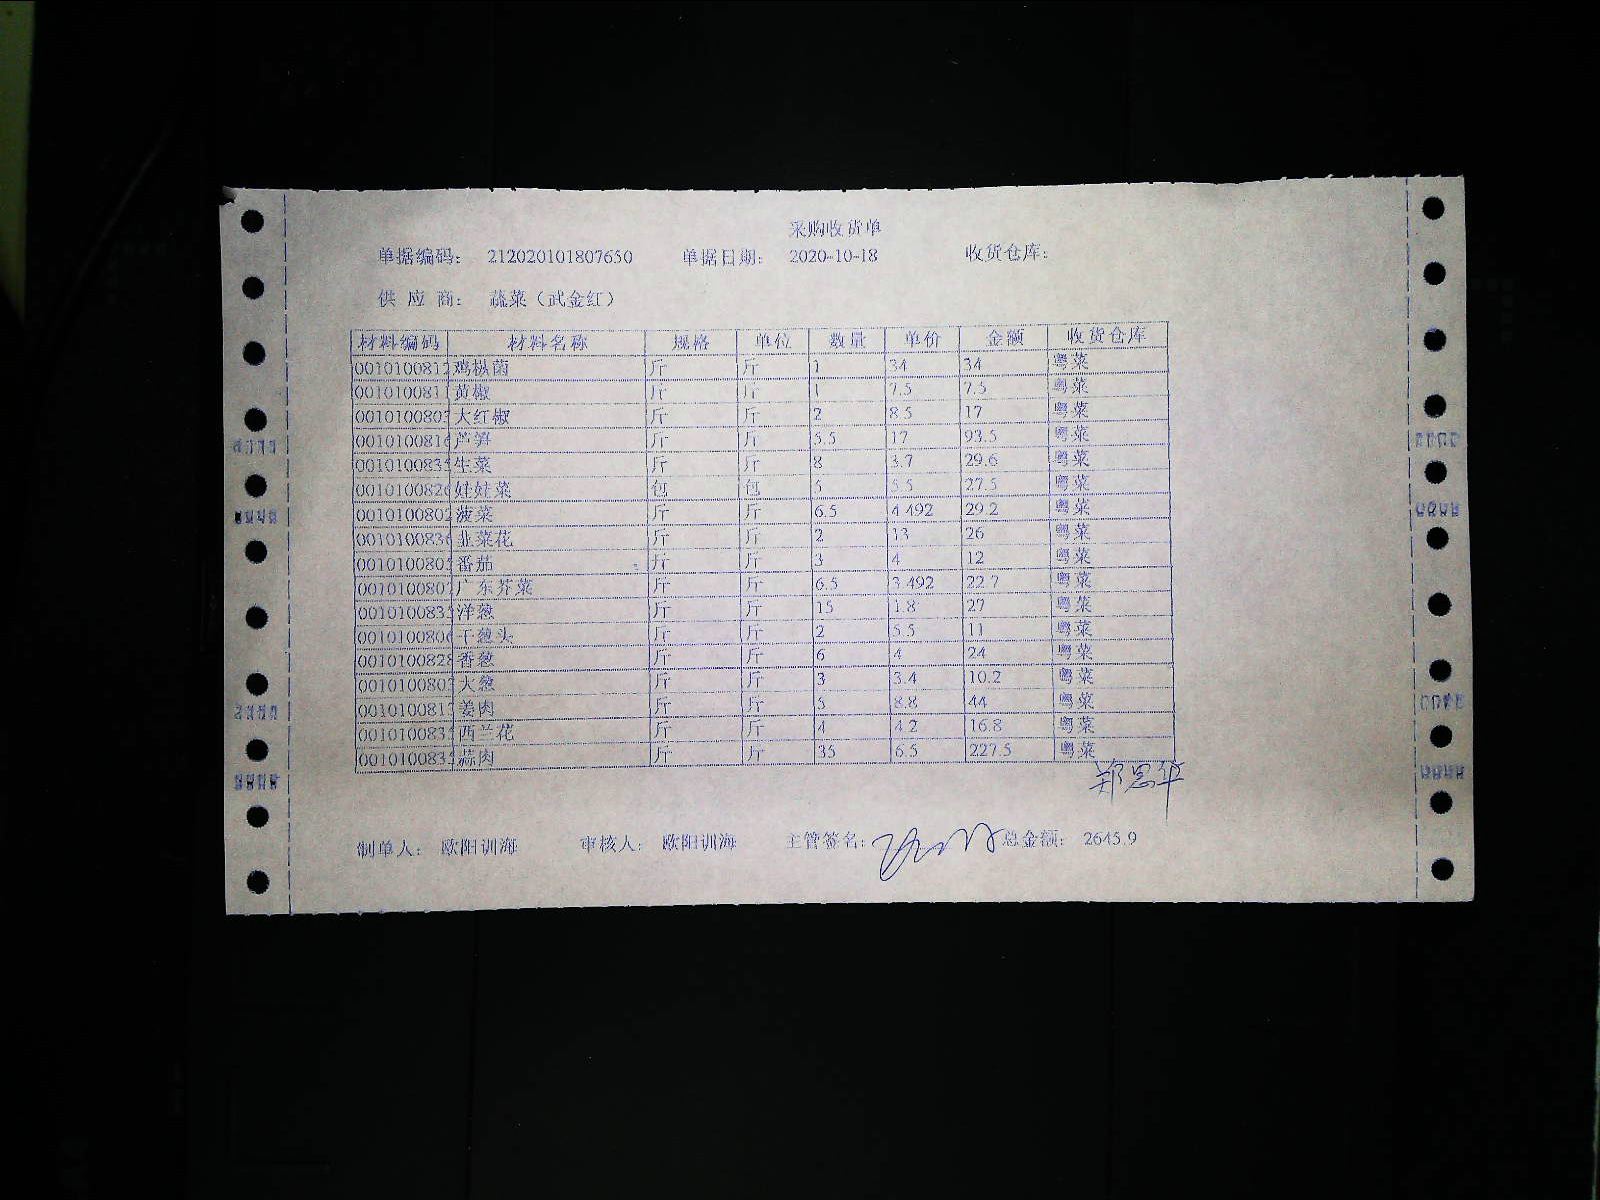 采购收货单
单据编码： 212020101807650 单据日期： 2020-10-18 收货仓库：
供 应 商： 蔬菜（武金红）
材料编码 材料名称 规格 单位 数量 单价 金额 收货仓库
0010100812 鸡枞菌 斤 斤 1 34 34 粤菜
0010100811 黄椒 斤 斤 1 7.5 7.5 粤菜
001010080 大红椒 斤 斤 2 8.5 17 粤菜
0010100816 芦笋 斤 斤 5.5 17 93.5 粤菜
001010083 生菜 斤 斤 8 3.7 29.6 粤菜
0010100826 娃娃菜 包 包 5 5.5 27.5 粤菜
0010100802 菠菜 斤 斤 6.5 4.492 29.2 粤菜
0010100836 韭菜花 斤 斤 2 13 26 粤菜
001010080 番茄 斤 斤 3 4 12 粤菜
001010080 广东芥菜 斤 斤 6.5 3.492 22.7 粤菜
001010083 洋葱 斤 斤 15 1.8 27 粤菜
0010100806 干葱头 斤 斤 2 5.5 11 粤菜
0010100828 香葱 斤 斤 6 4 24 粤菜
001010080 大葱 斤 斤 3 3.4 10.2 粤菜
001010081 姜肉 斤 斤 5 8.8 44 粤菜
001010083 西兰花 斤 斤 4 4.2 16.8 粤菜
001010083 蒜肉 斤 斤 35 6.5 227.5 粤菜
郑思华
制单人： 欧阳训海 审核人： 欧阳训海 主管签名： 总金额： 2645.9